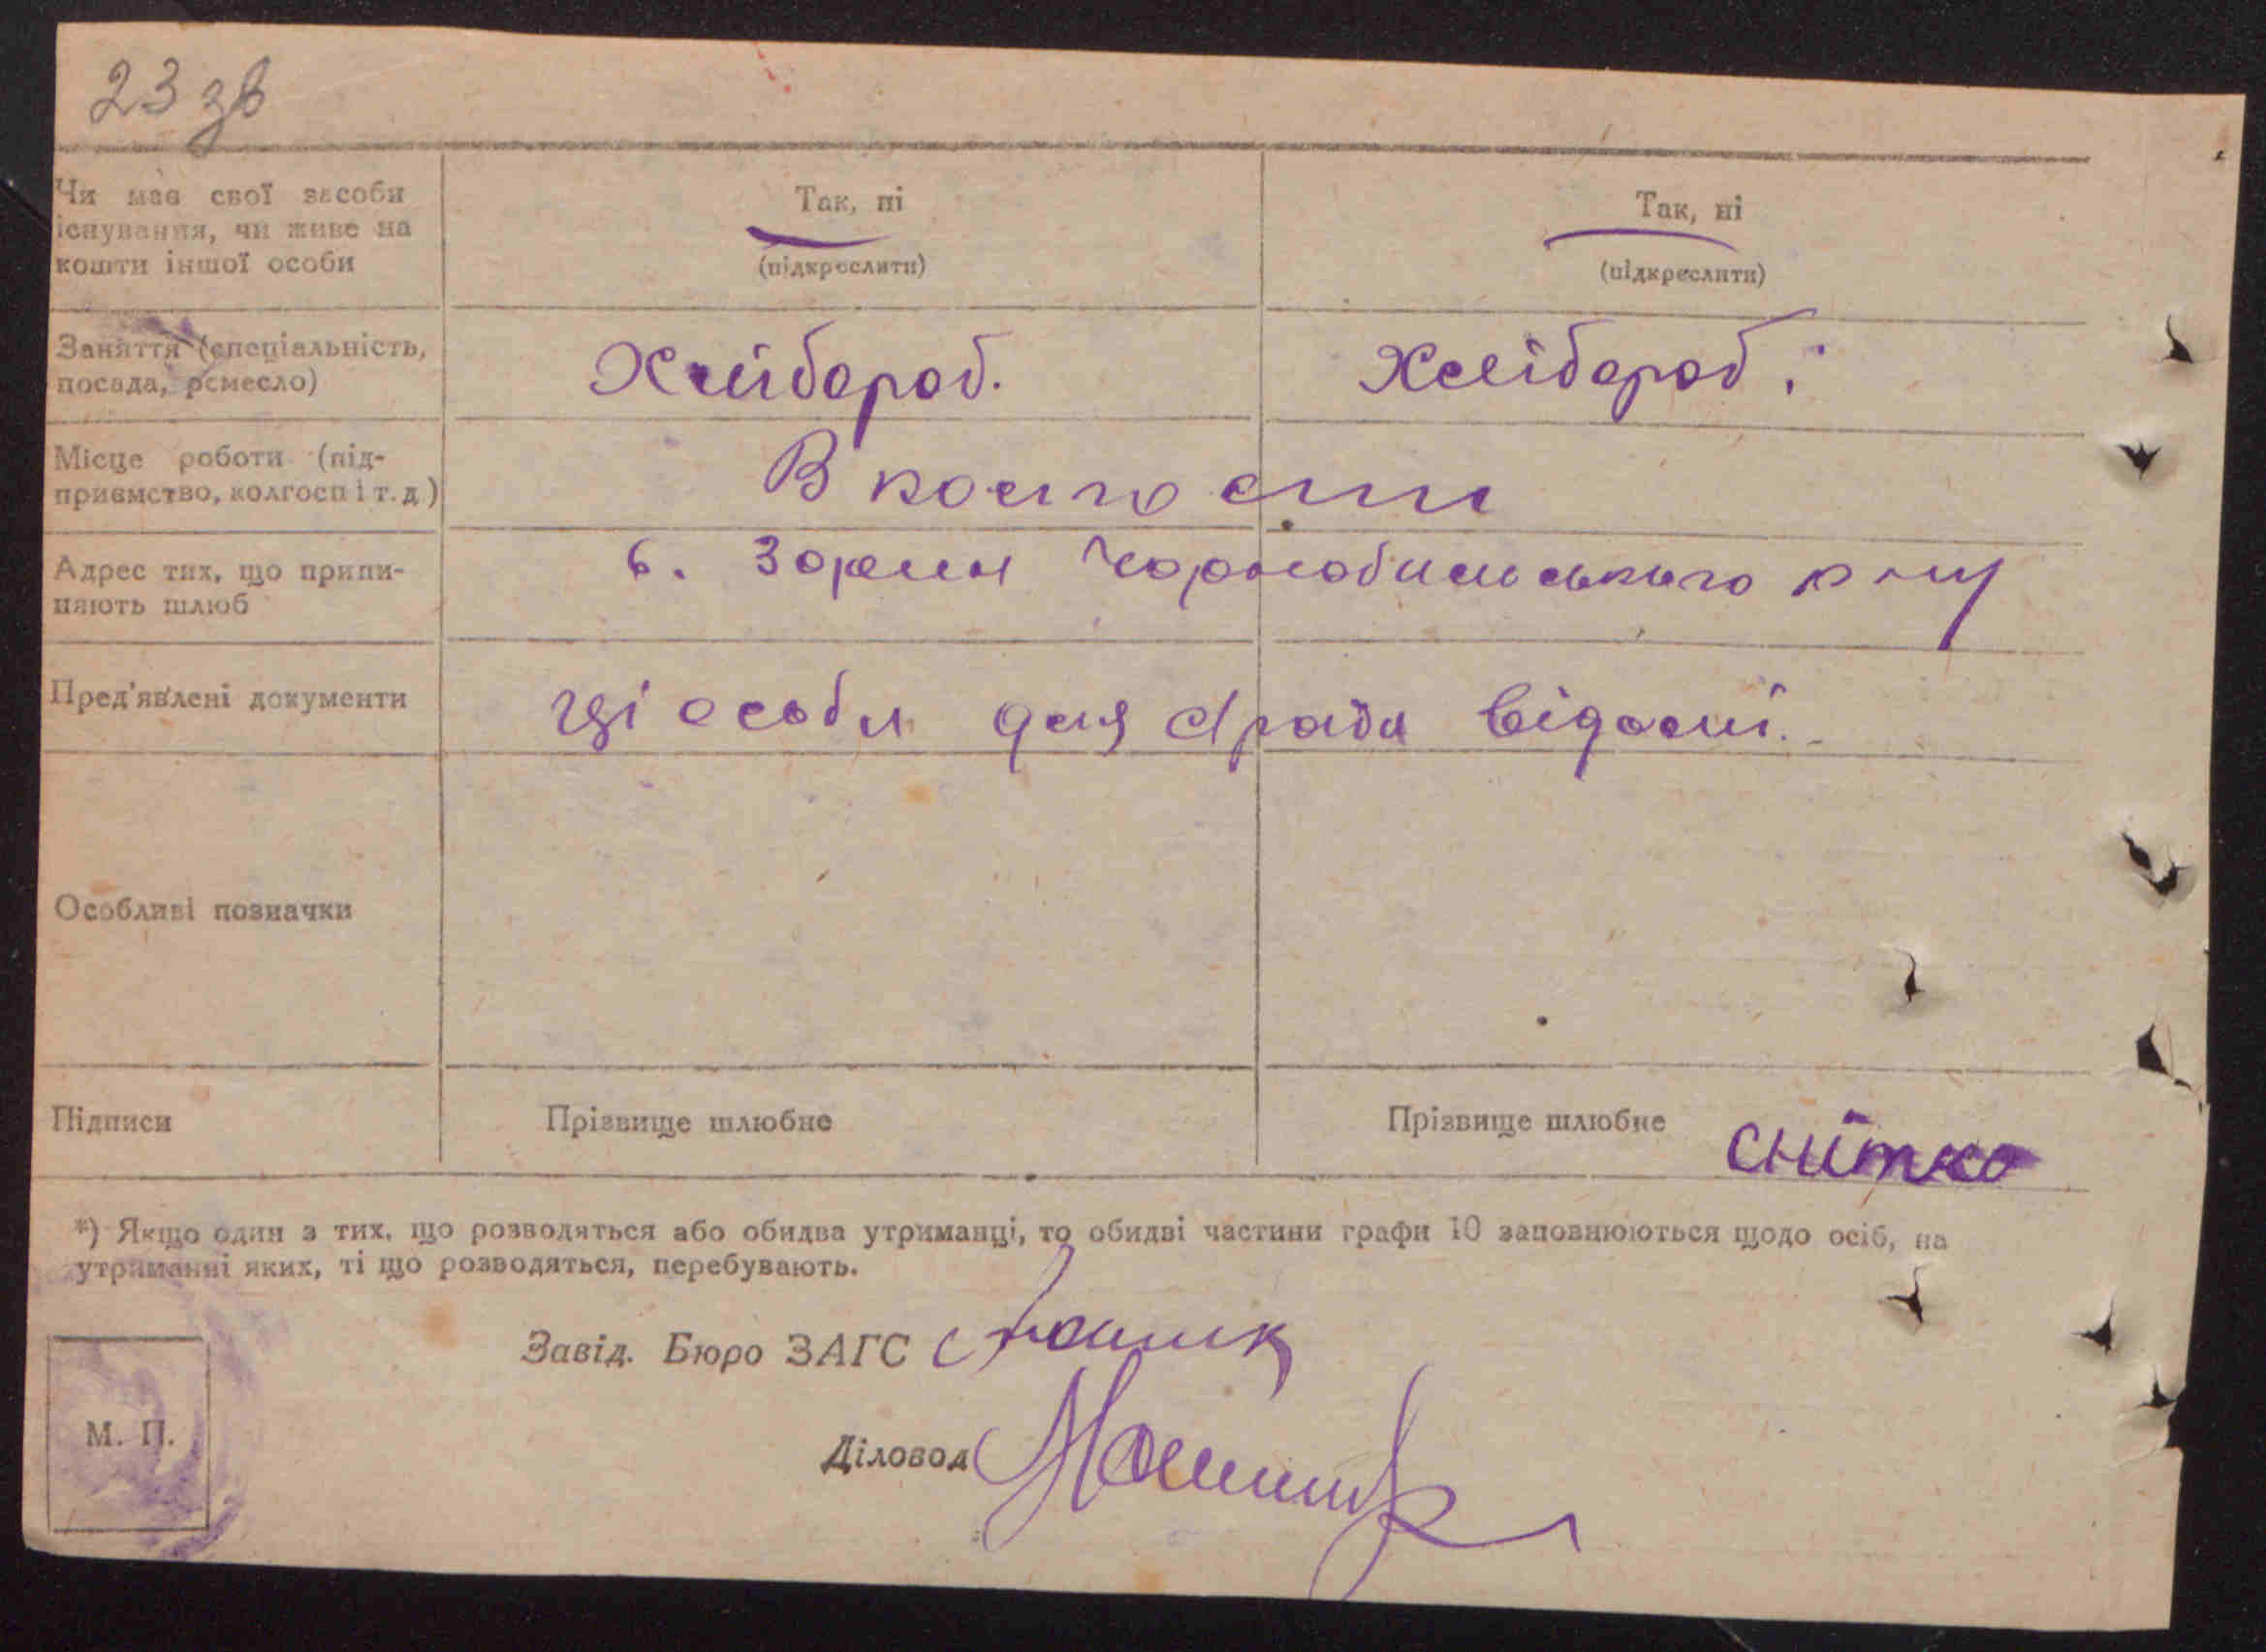 23 зв
Чи має свої засоби
існування, чи живе на
кошти іншої особи
Так, ні
(підкреслити)
Так, ні
(підкреслити)
Заняття (спеціальність,
посада, ремесло)
Хлібороб.
Хлібороб.
Місце роботи (під-
приємство, колгосп і т. д)
В колгоспі
Адрес тих, що припи-
няють шлюб
с. Зорин Чорнобильського р-ну
Пред'явлені документи
Ці особи для с/ради відомі.
Особливі позначки
Підписи
Прізвище шлюбне
Прізвище шлюбне
Снітко
*) Якщо один з тих, що розводяться або обидва утриманці, то обидві частини графи 10 заповнюються щодо осіб, на
утриманні яких, ті що розводяться, перебувають.
Завід. Бюро ЗАГС
Діловод
М. П.